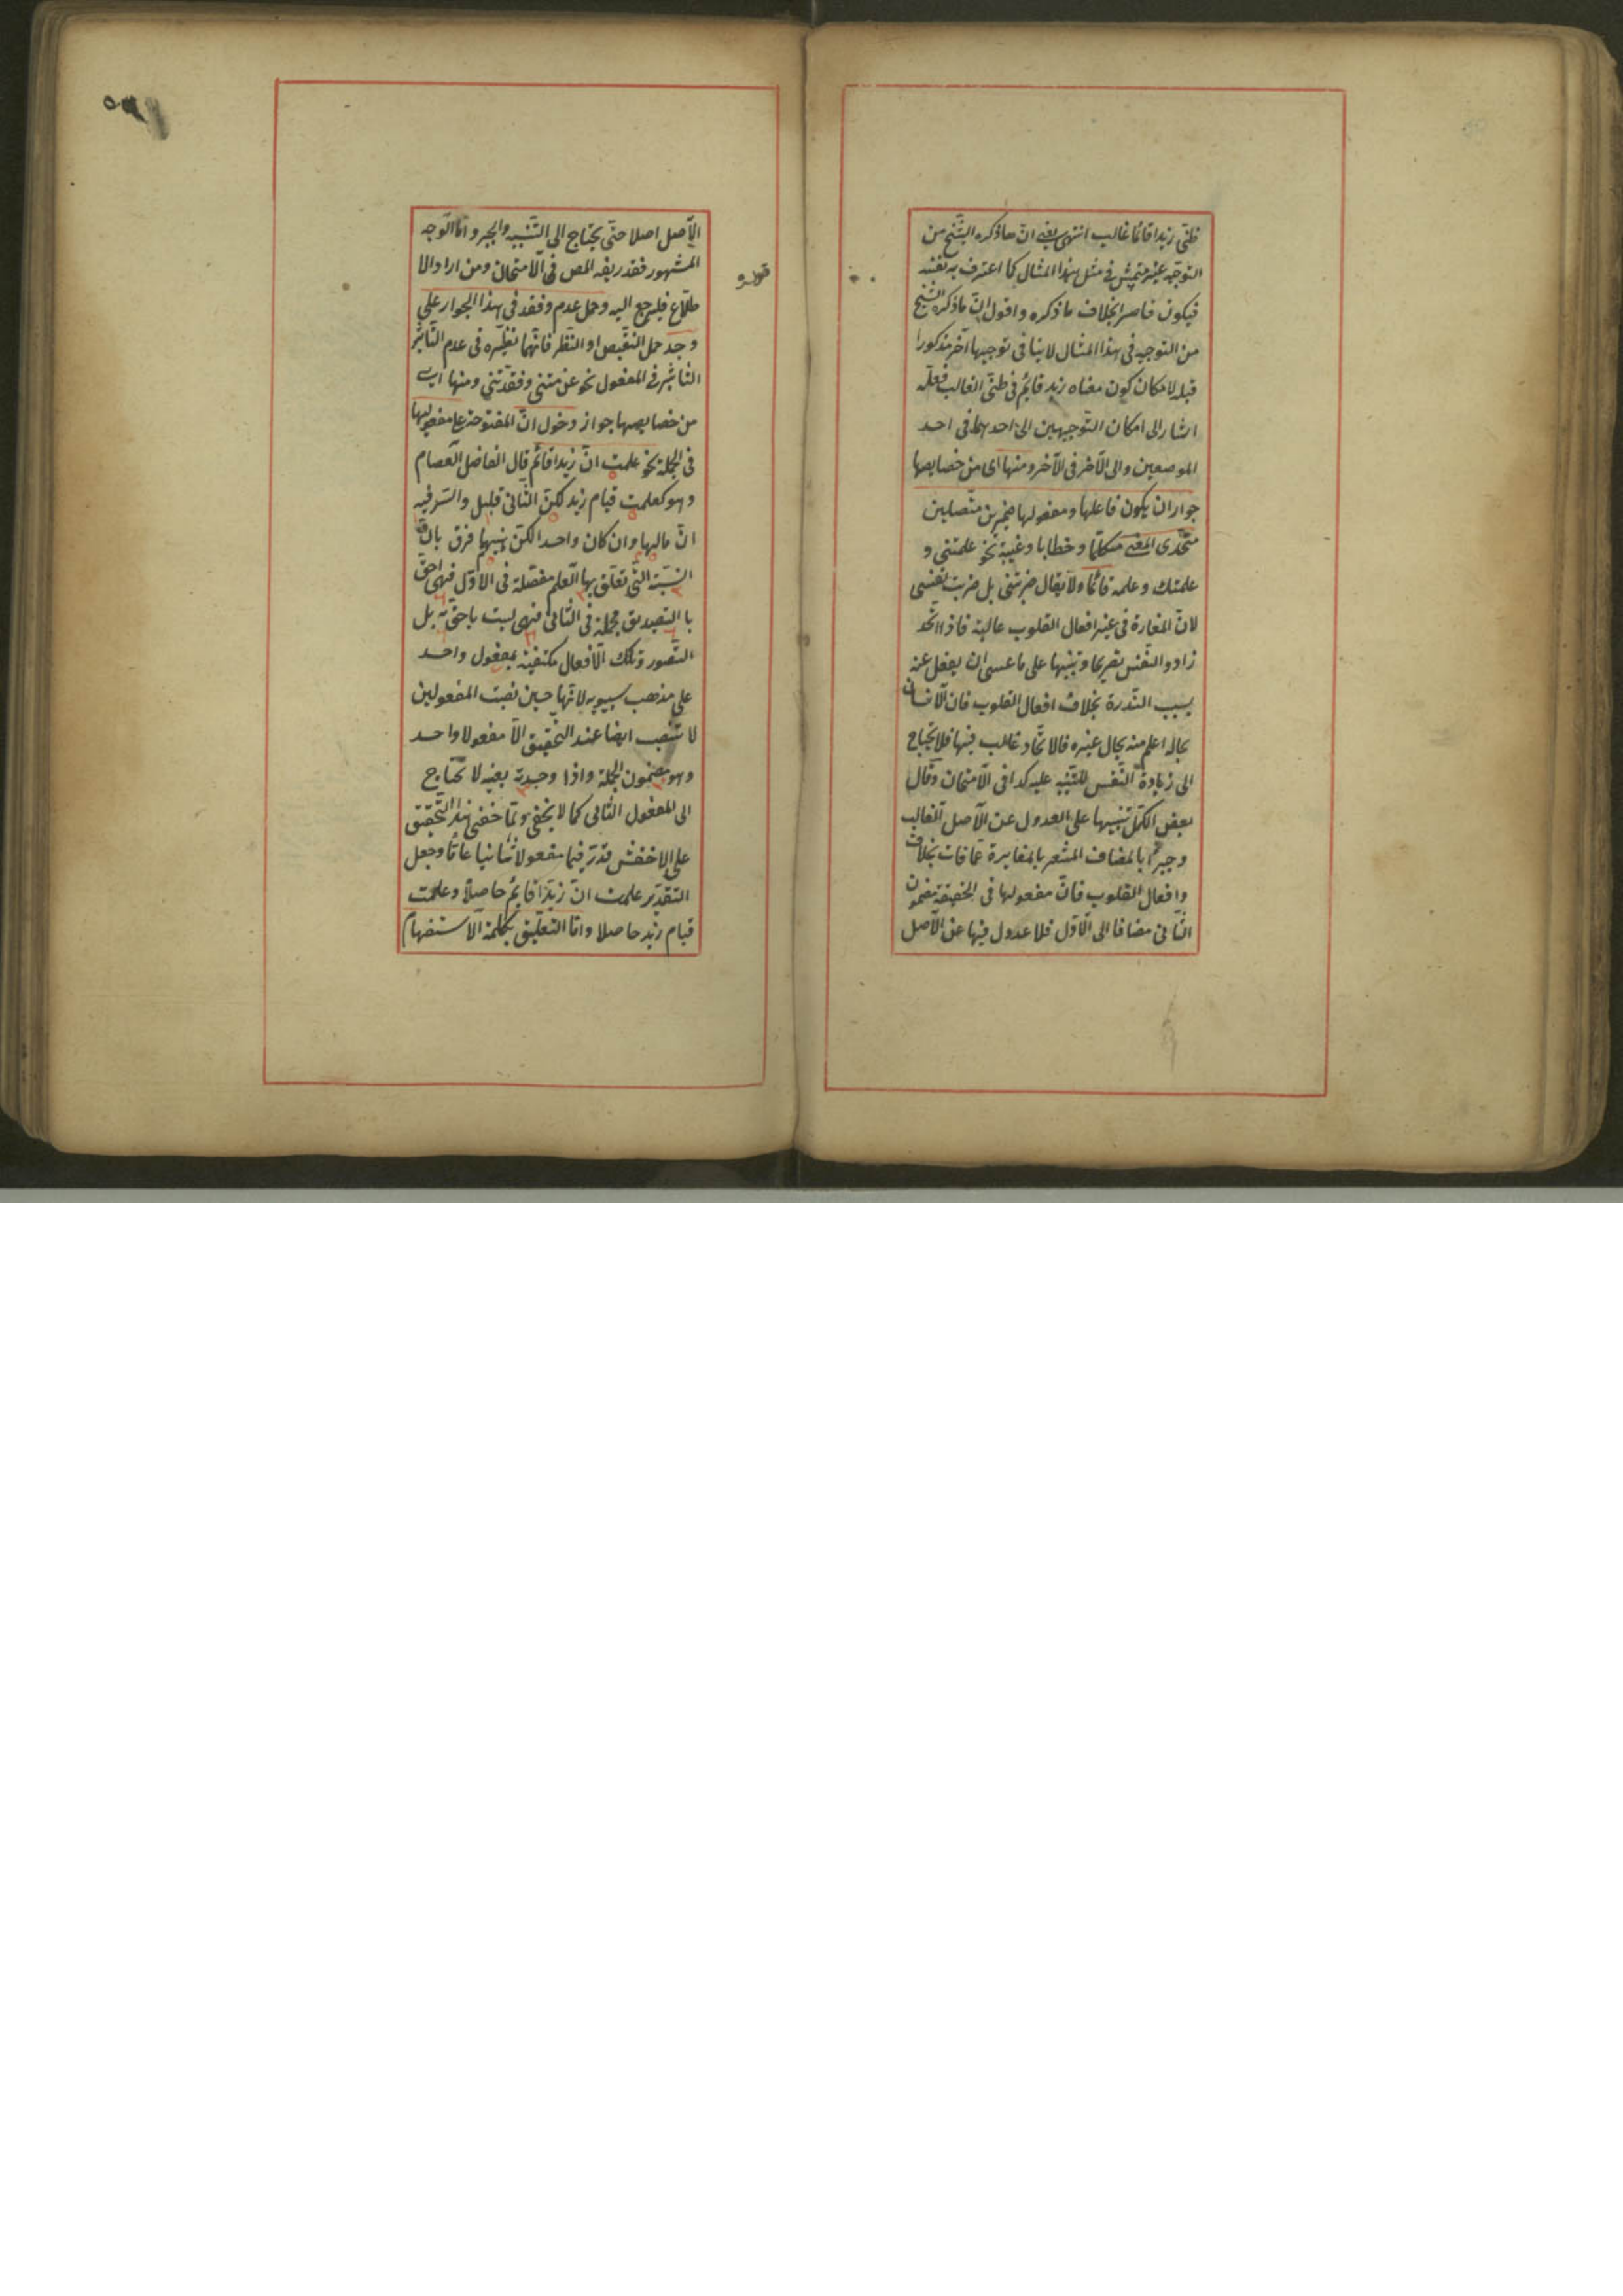 ظنّى زيدا قائما غالب انتهى يعنى انّ ما ذكره الشّيخ من
التوجّيه غير متمشّ فى مثل هذا المثال كما اعترف به نفسه
فيكون قاصرا بخلاف ما ذكره واقول انّ ما ذكره الشيخ
من التوجيه فى هذا المثال لا ينافى توجيها آخر مذكورا
قبله لامكان كون معناه زيد قائم فى ظنّى الغالب فلعلّه
اشار الى امكان التّوجيهين الى احدهما فى احد
الموضعين والى الآخر فى الآخر ومنها اى من خصايصها
جواز ان يكون فاعلها ومفعولها ضميرين متّصلين
متّحدى المعنى متكلّما وخطابا وغيبة نحو علمتنى و
علمتك وعلمه قائما ولا يقال ضربتنى بل ضربت نفسى
لانّ المغايرة فى غير افعال القلوب غالبة فاذا اتّحد
زادو النّفس تصريحا وتنبيها على ما عسى ان يغفل عنه
بسبب النّدرة بخلاف افعال القلوب فان الانسان
بحاله اعلم منه بحال غيره فالاتّحاد غالب فيها فلا يحتاج
الى زيادة النّفس للتّنبيه عليه كذا فى الامتحان وقال
بعض الكمّل تنبيها على العدول عن الاصل الغالب
وجبرا بالمضاف المشعر بالمغايرة عمّا فات بخلاف
وافعال القلوب فانّ مفعولها فى الحقيقة مضمون
الثّانى مضافا الى الاوّل فلا عدول فيها عن الاصل
الاصل اصلا حتّى يحتاج الى التّنبيه والجبر وامّا الوجه
المشهور فقد زيفه المص فى الامتحان ومن اراد الا
طلاع فليرجع اليه وحمل عدم وفقد فى هذا الجواز على
وجد حمل النقيض او النّظر فانّهما نظيره فى عدم التّاثير
التّاثير فى المفعول نحو عدمتنى وفقدتنى ومنها اى
من خصايصها جواز دخول انّ المفتوحة على مفعوليها
فى الجملة نحو علمت انّ زيدا قائم قال الفاضل العصام
وهو كعلمت قيام زيد لكنّ الثّانى قليل والسّر فيه
انّ مالهما وان كان واحدا لكن بينهما فرق بانّ
النّسبة الّتى تعلّق بها العلم مفصّلة فى الاوّل فهى احقّ
با التصديق مجملة فى الثّانى فهى ليست باحقّ به بل
التّصور وتلك الافعال مكتفية بمفعول واحد
على مذهب سيبويه لانّها حين نصبت المفعولين
لا تنصب ايضا عند التّحقيق الّا مفعولا واحد
وهو مضمون الجملة واذا وجدت بعينه لا تحتاج
الى المفعول الثّانى كما لا يخفى ولمّا خفى هذا التّحقيق
على الاخفش قدّر فيها مفعولا ثانيا عامّا وجعل
التقدير علمت انّ زيدا قايم حاصلا وعلمت
قيام زيد حاصلا وامّا التعليق بكلمة الاستفهام
قوله